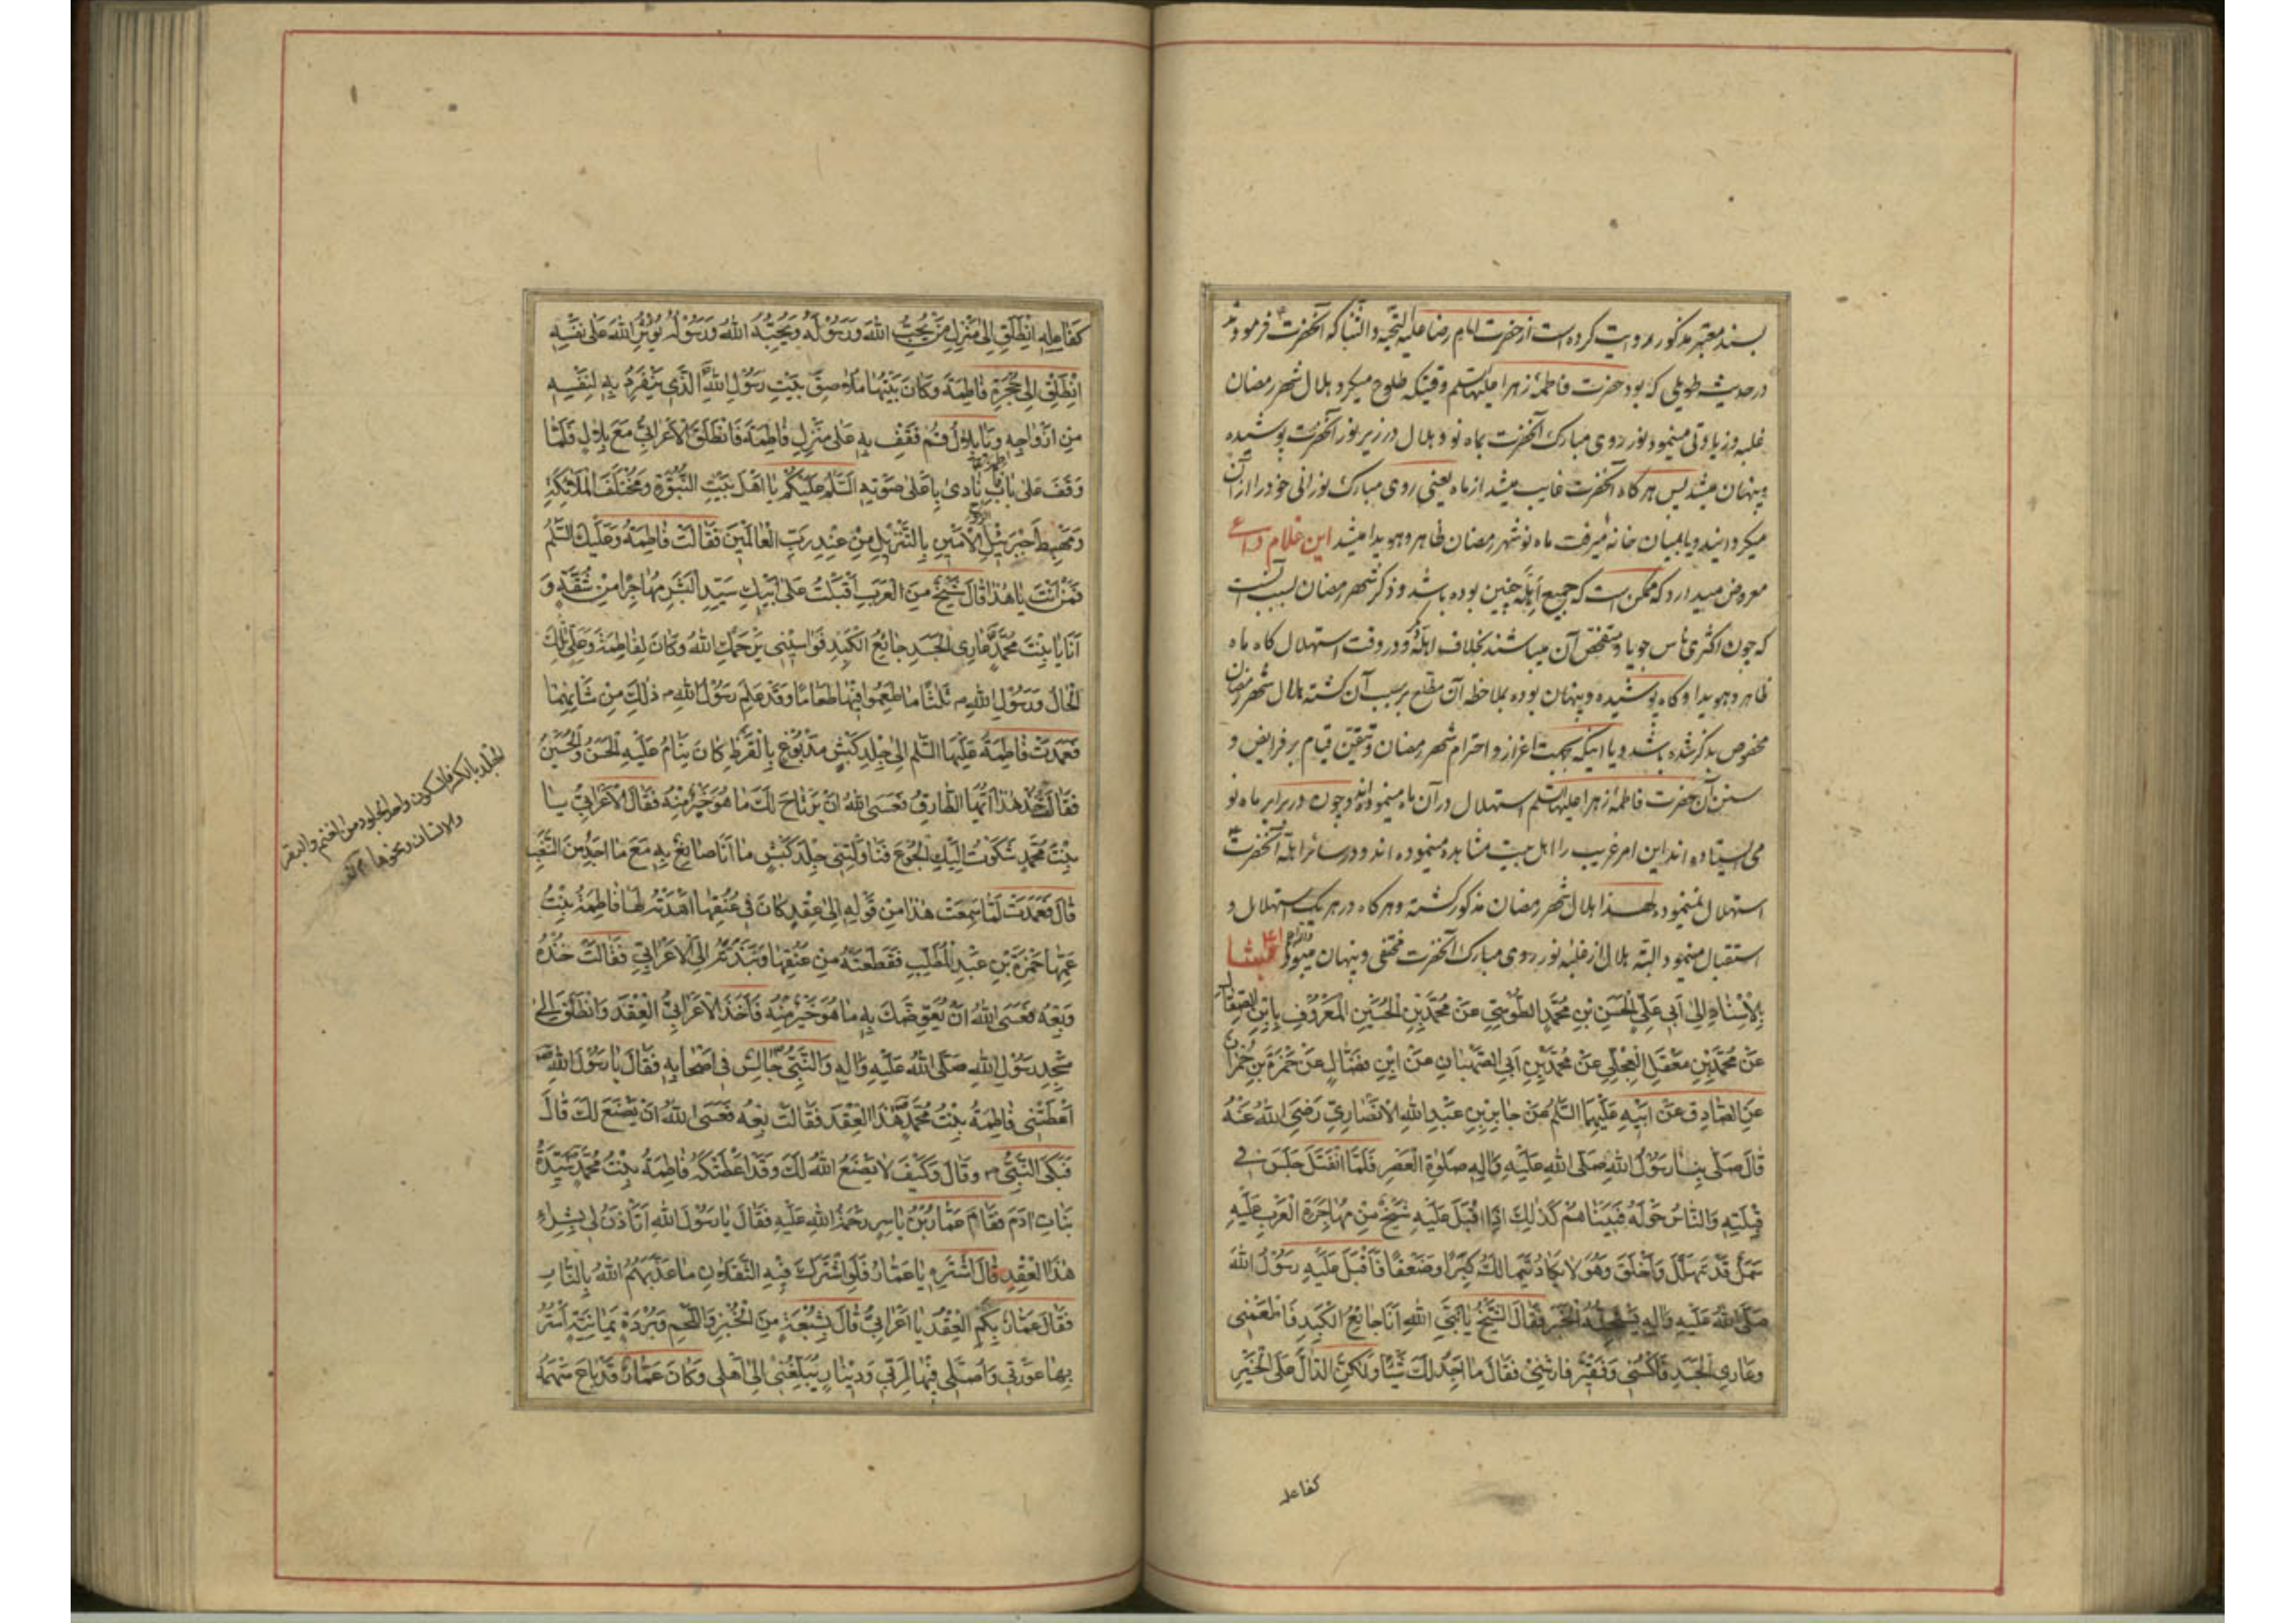 بسند معتبر مذکور روایت کرده است از حضرت امام رضا علیه التحیه والثنا که آنحضرت فرمودند
در حدیث طویلی که بود حضرت فاطمه زهرا علیها السلم وقتیکه طلوع میکرد هلال شهر رمضان
غلبه و زیادتی مینمود نور روی مبارک آنحضرت بماه نو و هلال در زیر نور آنحضرت پوشیده
و پنهان میشد پس هرگاه آنحضرت غایب میشد از ماه یعنی روی مبارک نورانی خود را از آن
میگردانید و یا بمیان خانه میرفت ماه نو شهر رمضان ظاهر و هویدا میشد این غلام
معروض میدارد که ممکن است که جمیع اهله چنین بوده باشد و ذکر شهر رمضان بسبب آنست
که چون اکثری ناس جویا و متفحص آن میباشند بخلاف اهله و در وقت استهلال گاه ماه
ظاهر و هویدا و گاه پوشیده و پنهان بوده بملاحظه آن مطلع بر سبب آن گشته هلال شهر رمضان
مخصوص بذکر شده باشد و یا اینکه بجهت اعزاز و احترام شهر رمضان و تیقن قیام بر فرایض و
سنن آن حضرت فاطمه زهرا علیها السلم استهلال در آن ماه مینموده اند و چون در برابر ماه نو
می ایستاده اند این امر غریب را اهل بیت مشاهده مینموده اند و در سائر اهله آنحضرت
استهلال نمینموده لهذا هلال شهر رمضان مذکور گشته و هرگاه در هر یک استهلال و
استقبال مینمود البته هلال از غلبه نور روی مبارک آنحضرت مختفی و پنهان میبود
بِالْاِسْنَادِ اِلىٰ اَبي عَلِيٍّ الْحَسَنِ بْنِ مُحَمَّدٍ الطُّوسِيِّ عَنْ مُحَمَّدِ بْنِ الْحُسَيْنِ الْمَعْرُوفِ بِابْنِ الصَّقَّالِ
عَنْ مُحَمَّدِ بْنِ مَعْقِلٍ الْعِجْلِيِّ عَنْ مُحَمَّدِ بْنِ اَبِي الصَّهْبَانِ عَنْ ابْنِ فَضَّالٍ عَنْ حَمْزَةَ بْنِ حُمْرَانَ
عَنِ الصَّادِقِ عَنْ اَبِيهِ عَلَيْهِمَا السَّلَمُ عَنْ جَابِرِ بْنِ عَبْدِ اللهِ الْاَنْصَارِيِّ رَضِيَ اللهُ عَنْهُ
قَالَ صَلَّى بِنَا رَسُولُ اللهِ صَلَّى اللهُ عَلَيْهِ وَاٰلِهِ صَلٰوةَ الْعَصْرِ فَلَمَّا انْفَتَلَ جَلَسَ فِي
قِبْلَتِهِ وَالنَّاسُ حَوْلَهُ فَبَيْنَا هُمْ كَذٰلِكَ اِذَا اَقْبَلَ عَلَيْهِ شَيْخٌ مِنْ مُهَاجِرَةِ الْعَرَبِ عَلَيْهِ
سَمَلٌ قَدْ تَهَلَّلَ وَاَخْلَقَ وَهُوَ لَا يَكَادُ يَتَمَالَكُ كِبَرًا وَضَعْفًا فَاَقْبَلَ عَلَيْهِ رَسُولُ اللهِ
صَلَّى اللهُ عَلَيْهِ وَاٰلِهِ الْخَبَرَ فَقَالَ الشَّيْخُ يَا نَبِيَّ اللهِ اَنَا جَائِعُ الْكَبِدِ فَاَطْعِمْنِي
وَعَارِي الْجَسَدِ فَاكْسُنِي وَفَقِيرٌ فَارِشْنِي فَقَالَ مَا اَجِدُ لَكَ شَيْئًا وَلٰكِنَّ الدَّالَّ عَلَى الْخَيْرِ
كفاعله
كَفَاعِلِهِ اِنْطَلِقْ اِلىٰ مَنْزِلِ مَنْ يُحِبُّ اللهَ وَرَسُولَهُ وَيُحِبُّهُ اللهُ وَرَسُولُهُ يُؤْثِرُ اللهَ عَلىٰ نَفْسِهِ
اِنْطَلِقْ اِلىٰ حُجْرَةِ فَاطِمَةَ وَكَانَ بَيْتُهَا مُلَاصِقَ بَيْتِ رَسُولِ اللهِ الَّذِي يَنْفَرِدُ بِهِ لِنَفْسِهِ
مِنْ اَزْوَاجِهِ وَيَا بِلَالُ قُمْ فَقِفْ بِهِ عَلىٰ مَنْزِلِ فَاطِمَةَ فَانْطَلَقَ الْاَعْرَابِيُّ مَعَ بِلَالٍ فَلَمَّا
وَقَفَ عَلىٰ بَابِ فَاطِمَةَ نَادىٰ بِاَعْلىٰ صَوْتِهِ السَّلَمُ عَلَيْكُمْ يَا اَهْلَ بَيْتِ النُّبُوَّةِ وَمُخْتَلَفَ الْمَلَائِكَةِ
وَمَهْبِطَ جِبْرَئِيلَ الرُّوحِ الْاَمِينِ بِالتَّنْزِيلِ مِنْ عِنْدِ رَبِّ الْعَالَمِينَ فَقَالَتْ فَاطِمَةُ وَعَلَيْكَ السَّلَمُ
فَمَنْ اَنْتَ يَا هٰذَا قَالَ شَيْخٌ مِنَ الْعَرَبِ اَقْبَلْتُ عَلىٰ اَبِيكِ سَيِّدِ الْبَشَرِ مُهَاجِرًا مِنْ شُقَّةٍ وَ
اَنَا يَا بِنْتَ مُحَمَّدٍ عَارِي الْجَسَدِ جَائِعُ الْكَبِدِ فَوَاسِينِي يَرْحَمُكِ اللهُ وَكَانَ لِفَاطِمَةَ وَعَلِيٍّ تِلْكَ
الْحَالُ وَرَسُولِ اللهِ ثَلَثًا مَا طَعِمُوا فِيهَا طَعَامًا وَقَدْ عَلِمَ رَسُولُ اللهِ ذٰلِكَ مِنْ شَأْنِهِمَا
فَعَمَدَتْ فَاطِمَةُ عَلَيْهَا السَّلَمُ اِلىٰ جِلْدِ كَبْشٍ مَدْبُوغٍ بِالْقَرَظِ كَانَ يَنَامُ عَلَيْهِ الْحَسَنُ وَالْحُسَيْنُ
فَقَالَتْ خُذْ هٰذَا اَيُّهَا الطَّارِقُ فَعَسَى اللهُ اَنْ يَرْتَاحَ لَكَ مَا هُوَ خَيْرٌ مِنْهُ فَقَالَ الْاَعْرَابِيُّ يَا
بِنْتَ مُحَمَّدٍ شَكَوْتُ اِلَيْكِ الْجُوعَ فَنَاوَلْتِنِي جِلْدَ كَبْشٍ مَا اَنَا صَانِعٌ بِهِ مَعَ مَا اَجِدُ مِنَ السَّغَبِ
قَالَ فَعَمَدَتْ لَمَّا سَمِعَتْ هٰذَا مِنْ قَوْلِهِ اِلىٰ عِقْدٍ كَانَ فِي عُنُقِهَا اَهْدَتْهُ لَهَا فَاطِمَةُ بِنْتُ
عَمِّهَا حَمْزَةَ بْنِ عَبْدِ الْمُطَّلِبِ فَقَطَعَتْهُ مِنْ عُنُقِهَا وَنَبَذَتْهُ اِلَى الْاَعْرَابِيِّ فَقَالَتْ خُذْهُ
وَبِعْهُ فَعَسَى اللهُ اَنْ يُعَوِّضَكَ بِهِ مَا هُوَ خَيْرٌ مِنْهُ فَاَخَذَ الْاَعْرَابِيُّ الْعِقْدَ وَانْطَلَقَ اِلىٰ
مَسْجِدِ رَسُولِ اللهِ صَلَّى اللهُ عَلَيْهِ وَاٰلِهِ وَالنَّبِيُّ جَالِسٌ فِي اَصْحَابِهِ فَقَالَ يَا رَسُولَ اللهِ
اَعْطَتْنِي فَاطِمَةُ بِنْتُ مُحَمَّدٍ هٰذَا الْعِقْدَ فَقَالَتْ بِعْهُ فَعَسَى اللهُ اَنْ يَصْنَعَ لَكَ قَالَ
فَبَكَى النَّبِيُّ وَقَالَ وَكَيْفَ لَا يَصْنَعُ اللهُ لَكَ وَقَدْ اَعْطَتْكَهُ فَاطِمَةُ بِنْتُ مُحَمَّدٍ سَيِّدَةُ
بَنَاتِ اٰدَمَ فَقَامَ عَمَّارُ بْنُ يَاسِرٍ رَحْمَةُ اللهِ عَلَيْهِ فَقَالَ يَا رَسُولَ اللهِ اَتَأْذَنُ لِي بِشِرَاءِ
هٰذَا الْعِقْدِ قَالَ اشْتَرِهِ يَا عَمَّارُ فَلَوِ اشْتَرَكَ فِيهِ الثَّقَلَانِ مَا عَذَّبَهُمُ اللهُ بِالنَّارِ
فَقَالَ عَمَّارٌ بِكَمِ الْعِقْدُ يَا اَعْرَابِيُّ قَالَ بِشُبْعَةٍ مِنَ الْخُبْزِ وَاللَّحْمِ وَبُرْدَةٍ يَمَانِيَّةٍ اَسْتُرُ
بِهَا عَوْرَتِي وَاُصَلِّي فِيهَا لِرَبِّي وَدِينَارٍ يُبَلِّغُنِي اِلىٰ اَهْلِي وَكَانَ عَمَّارٌ قَدْ بَاعَ سَهْمَهُ
الجلد بالكسر فالسكون واحد الجلود من الغنم والبقر
والانسان ونحوها